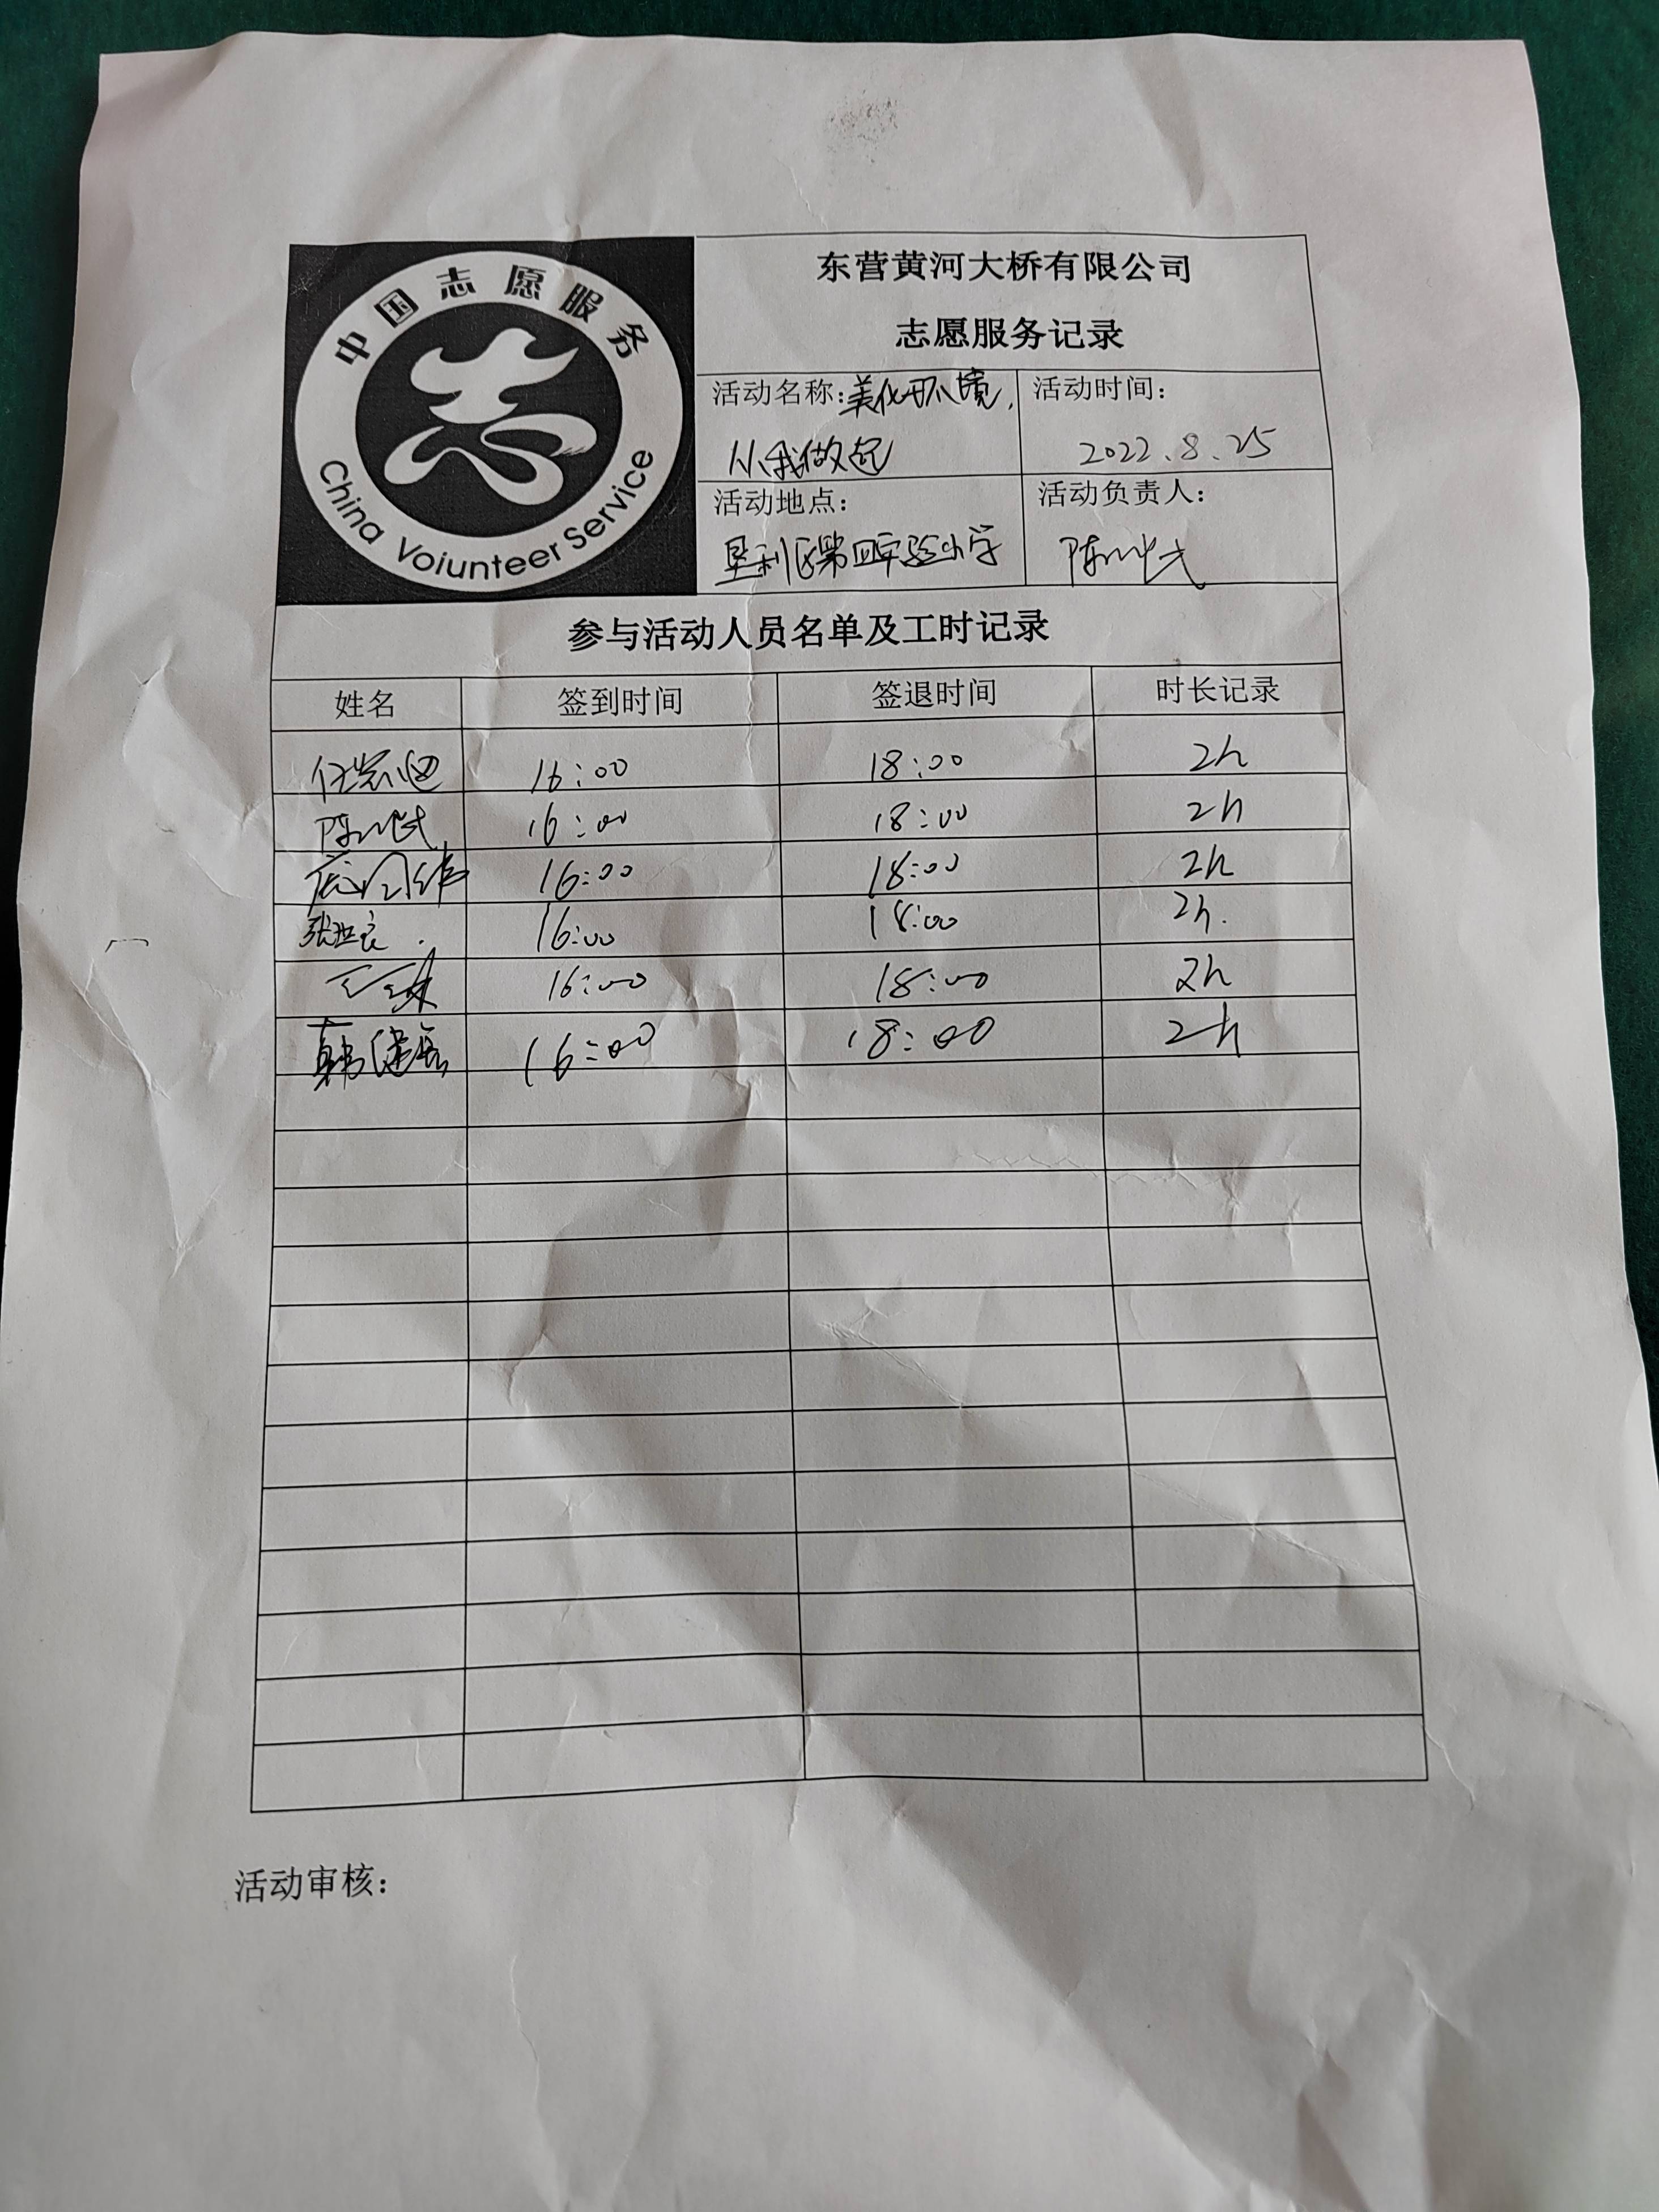 中国志愿服务
China Voiunteer Service
东营黄河大桥有限公司
志愿服务记录
活动名称:美化环境,
从我做起
活动时间:
2022.8.25
活动地点:
垦利区第四实验小学
活动负责人:
陈
参与活动人员名单及工时记录
姓名 签到时间 签退时间 时长记录
任 16:00 18:00 2h
陈 16:00 18:00 2h
16:00 18:00 2h
张 16:00 18:00 2h.
王 16:00 18:00 2h
韩 16:00 18:00 2h
活动审核: